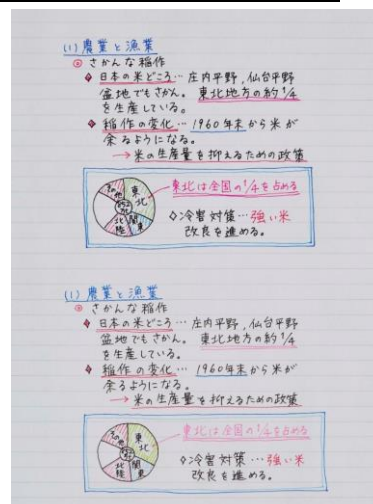 (1) 農業と漁業
◎ さかんな稲作
◆ 日本の米どころ… 庄内平野, 仙台平野
盆地でもさかん。 東北地方の約1/4
を生産している。
◆ 稲作の変化… 1960年末から米が
余るようになる。
→ 米の生産量を抑えるための政策
その他 東北
北陸 関東
東北は全国の1/4を占める
◇冷害対策…強い米
改良を進める。
(1) 農業と漁業
◎ さかんな稲作
◆ 日本の米どころ… 庄内平野, 仙台平野
盆地でもさかん。 東北地方の約1/4
を生産している。
◆ 稲作の変化… 1960年末から米が
余るようになる。
→ 米の生産量を抑えるための政策
その他 東北
北陸 関東
東北は全国の1/4を占める
◇冷害対策…強い米
改良を進める。